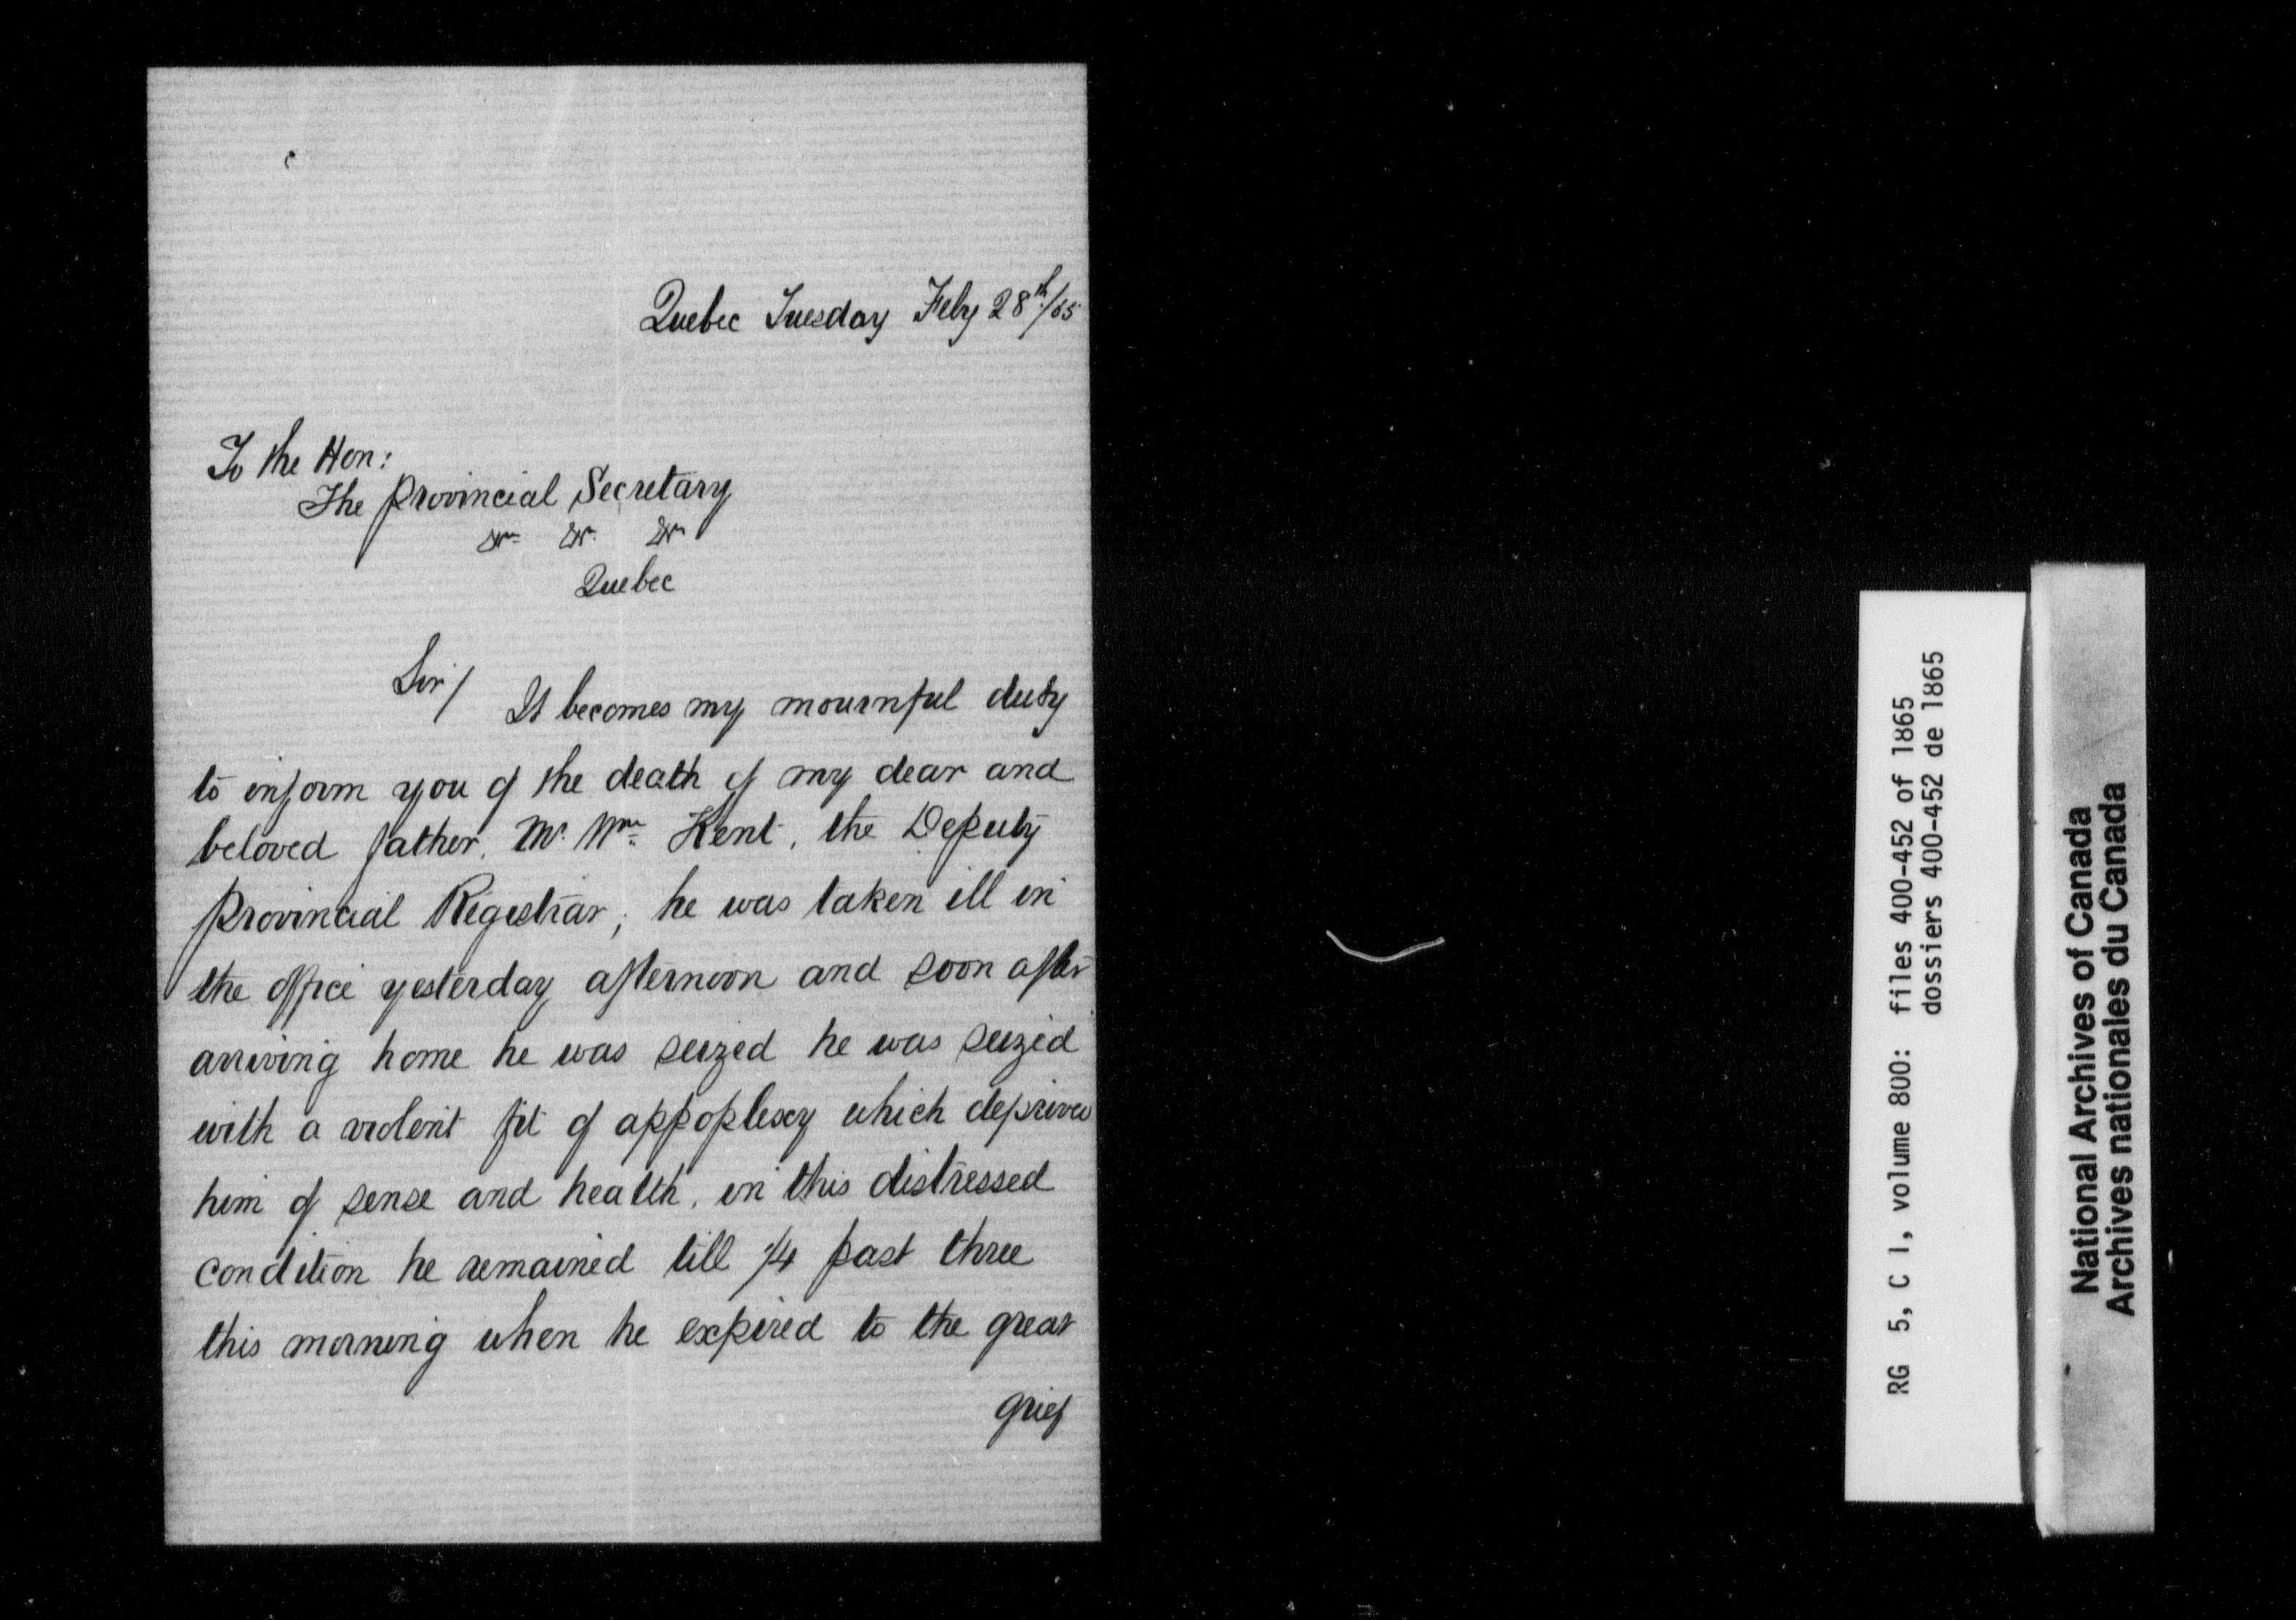 Quebec Tuesday Feby 28th/65
To the Hon:
The Provincial Secretary
&c &c &c
Quebec
Sir/ It becomes my mournful duty
to inform you of the death of my dear and
beloved father. Mr. Wm. Kent, the Deputy
Provincial Registrar; he was taken ill in
the office yesterday afternoon and soon after
arriving home he was seized he was seized
with a violent fit of appoplexy which deprived
him of sense and health, in this distressed
condition he remained till 1/4 past three
this morning when he expired to the great
grief
RG 5, C 1, volume 800: files 400-452 of 1865
dossiers 400-452 de 1865
National Archives of Canada
Archives nationales du Canada